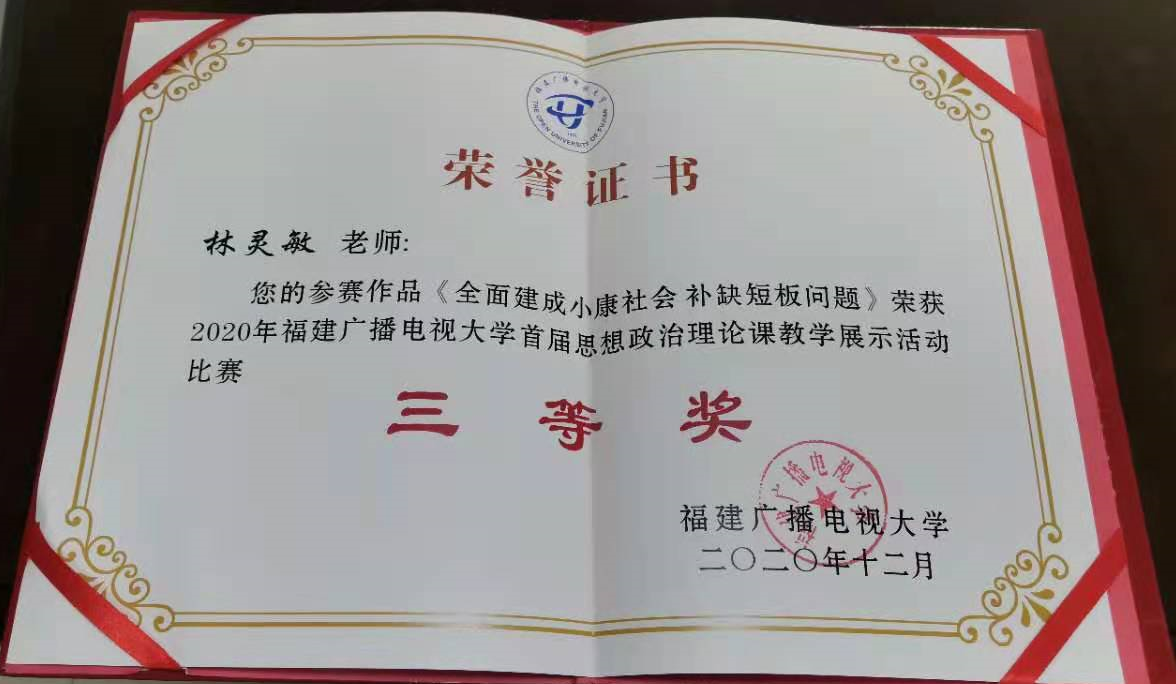 福建广播电视大学
THE OPEN UNIVERSITY OF FUJIAN
荣誉证书
林灵敏 老师:
您的参赛作品《全面建成小康社会 补缺短板问题》荣获
2020年福建广播电视大学首届思想政治理论课教学展示活动
比赛
三等奖
福建广播电视大学
福建广播电视大学
二〇二〇年十二月